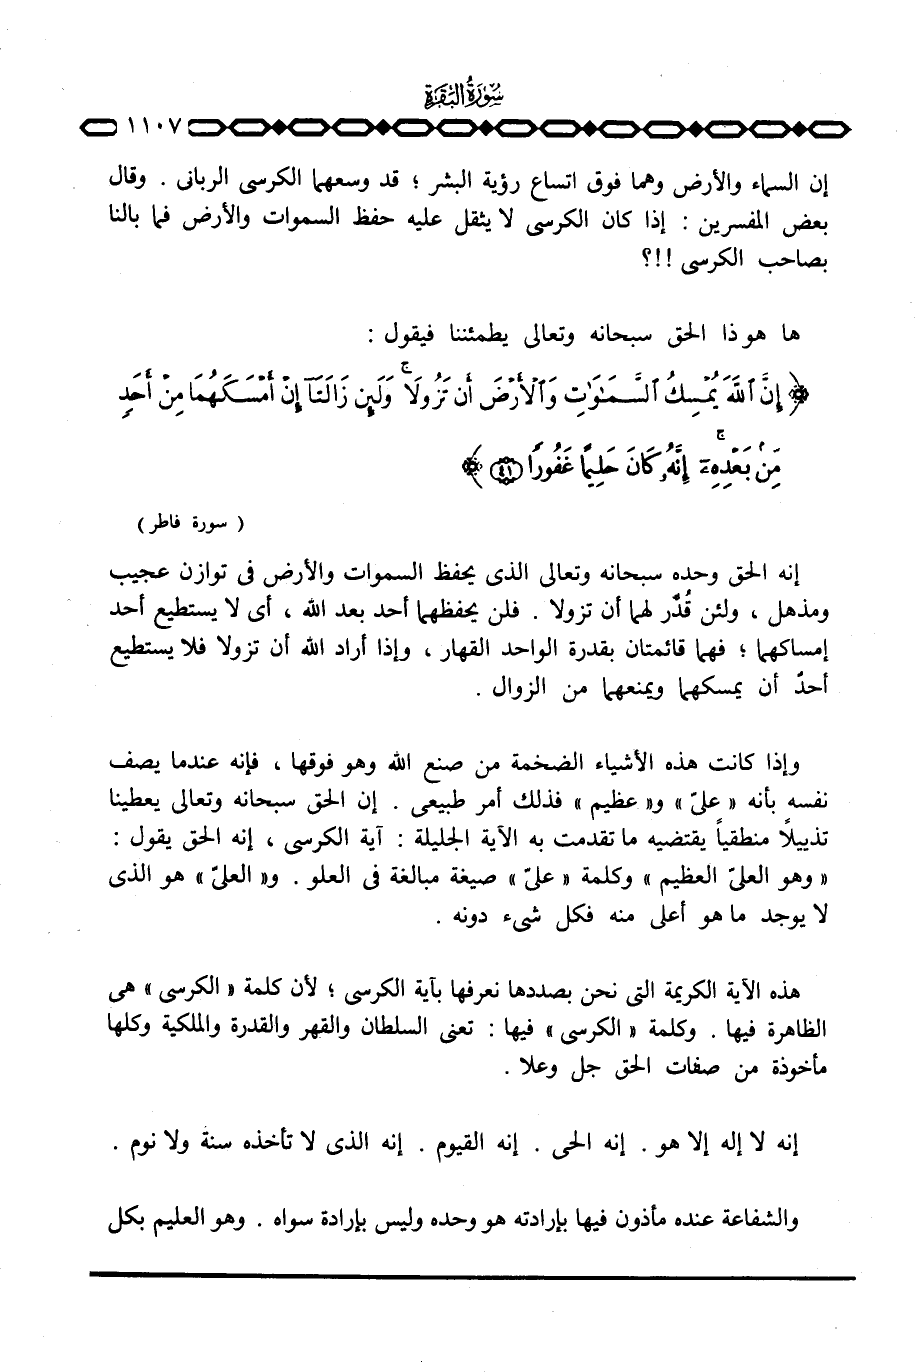 سورة البقرة
١١٠٧
إن السماء والأرض وهما فوق اتساع رؤية البشر ؛ قد وسعهما الكرسى الربانى . وقال
بعض المفسرين : إذا كان الكرسى لا يثقل عليه حفظ السموات والأرض فما بالنا
بصاحب الكرسى !!؟
ها هو ذا الحق سبحانه وتعالى يطمئننا فيقول :
﴿ إِنَّ ٱللَّهَ يُمْسِكُ ٱلسَّمَٰوَٰتِ وَٱلْأَرْضَ أَن تَزُولَا ۚ وَلَئِن زَالَتَآ إِنْ أَمْسَكَهُمَا مِنْ أَحَدٍ
مِّنۢ بَعْدِهِۦٓ ۚ إِنَّهُۥ كَانَ حَلِيمًا غَفُورًا ٤١ ﴾
( سورة فاطر )
إنه الحق وحده سبحانه وتعالى الذى يحفظ السموات والأرض فى توازن عجيب
ومذهل ، ولئن قُدّر لهما أن تزولا . فلن يحفظهما أحد بعد الله ، أى لا يستطيع أحد
إمساكهما ؛ فهما قائمتان بقدرة الواحد القهار ، وإذا أراد الله أن تزولا فلا يستطيع
أحدٌ أن يمسكهما ويمنعهما من الزوال .
وإذا كانت هذه الأشياء الضخمة من صنع الله وهو فوقها ، فإنه عندما يصف
نفسه بأنه « علىّ » و« عظيم » فذلك أمر طبيعى . إن الحق سبحانه وتعالى يعطينا
تذييلاً منطقياً يقتضيه ما تقدمت به الآية الجليلة : آية الكرسى ، إنه الحق يقول :
« وهو العلىّ العظيم » وكلمة « علىّ » صيغة مبالغة فى العلو . و« العلىّ » هو الذى
لا يوجد ما هو أعلى منه فكل شىء دونه .
هذه الآية الكريمة التى نحن بصددها نعرفها بآية الكرسى ؛ لأن كلمة « الكرسى » هى
الظاهرة فيها . وكلمة « الكرسى » فيها : تعنى السلطان والقهر والقدرة والملكية وكلها
مأخوذة من صفات الحق جل وعلا .
إنه لا إله إلا هو . إنه الحى . إنه القيوم . إنه الذى لا تأخذه سنة ولا نوم .
والشفاعة عنده مأذون فيها بإرادته هو وحده وليس بإرادة سواه . وهو العليم بكل